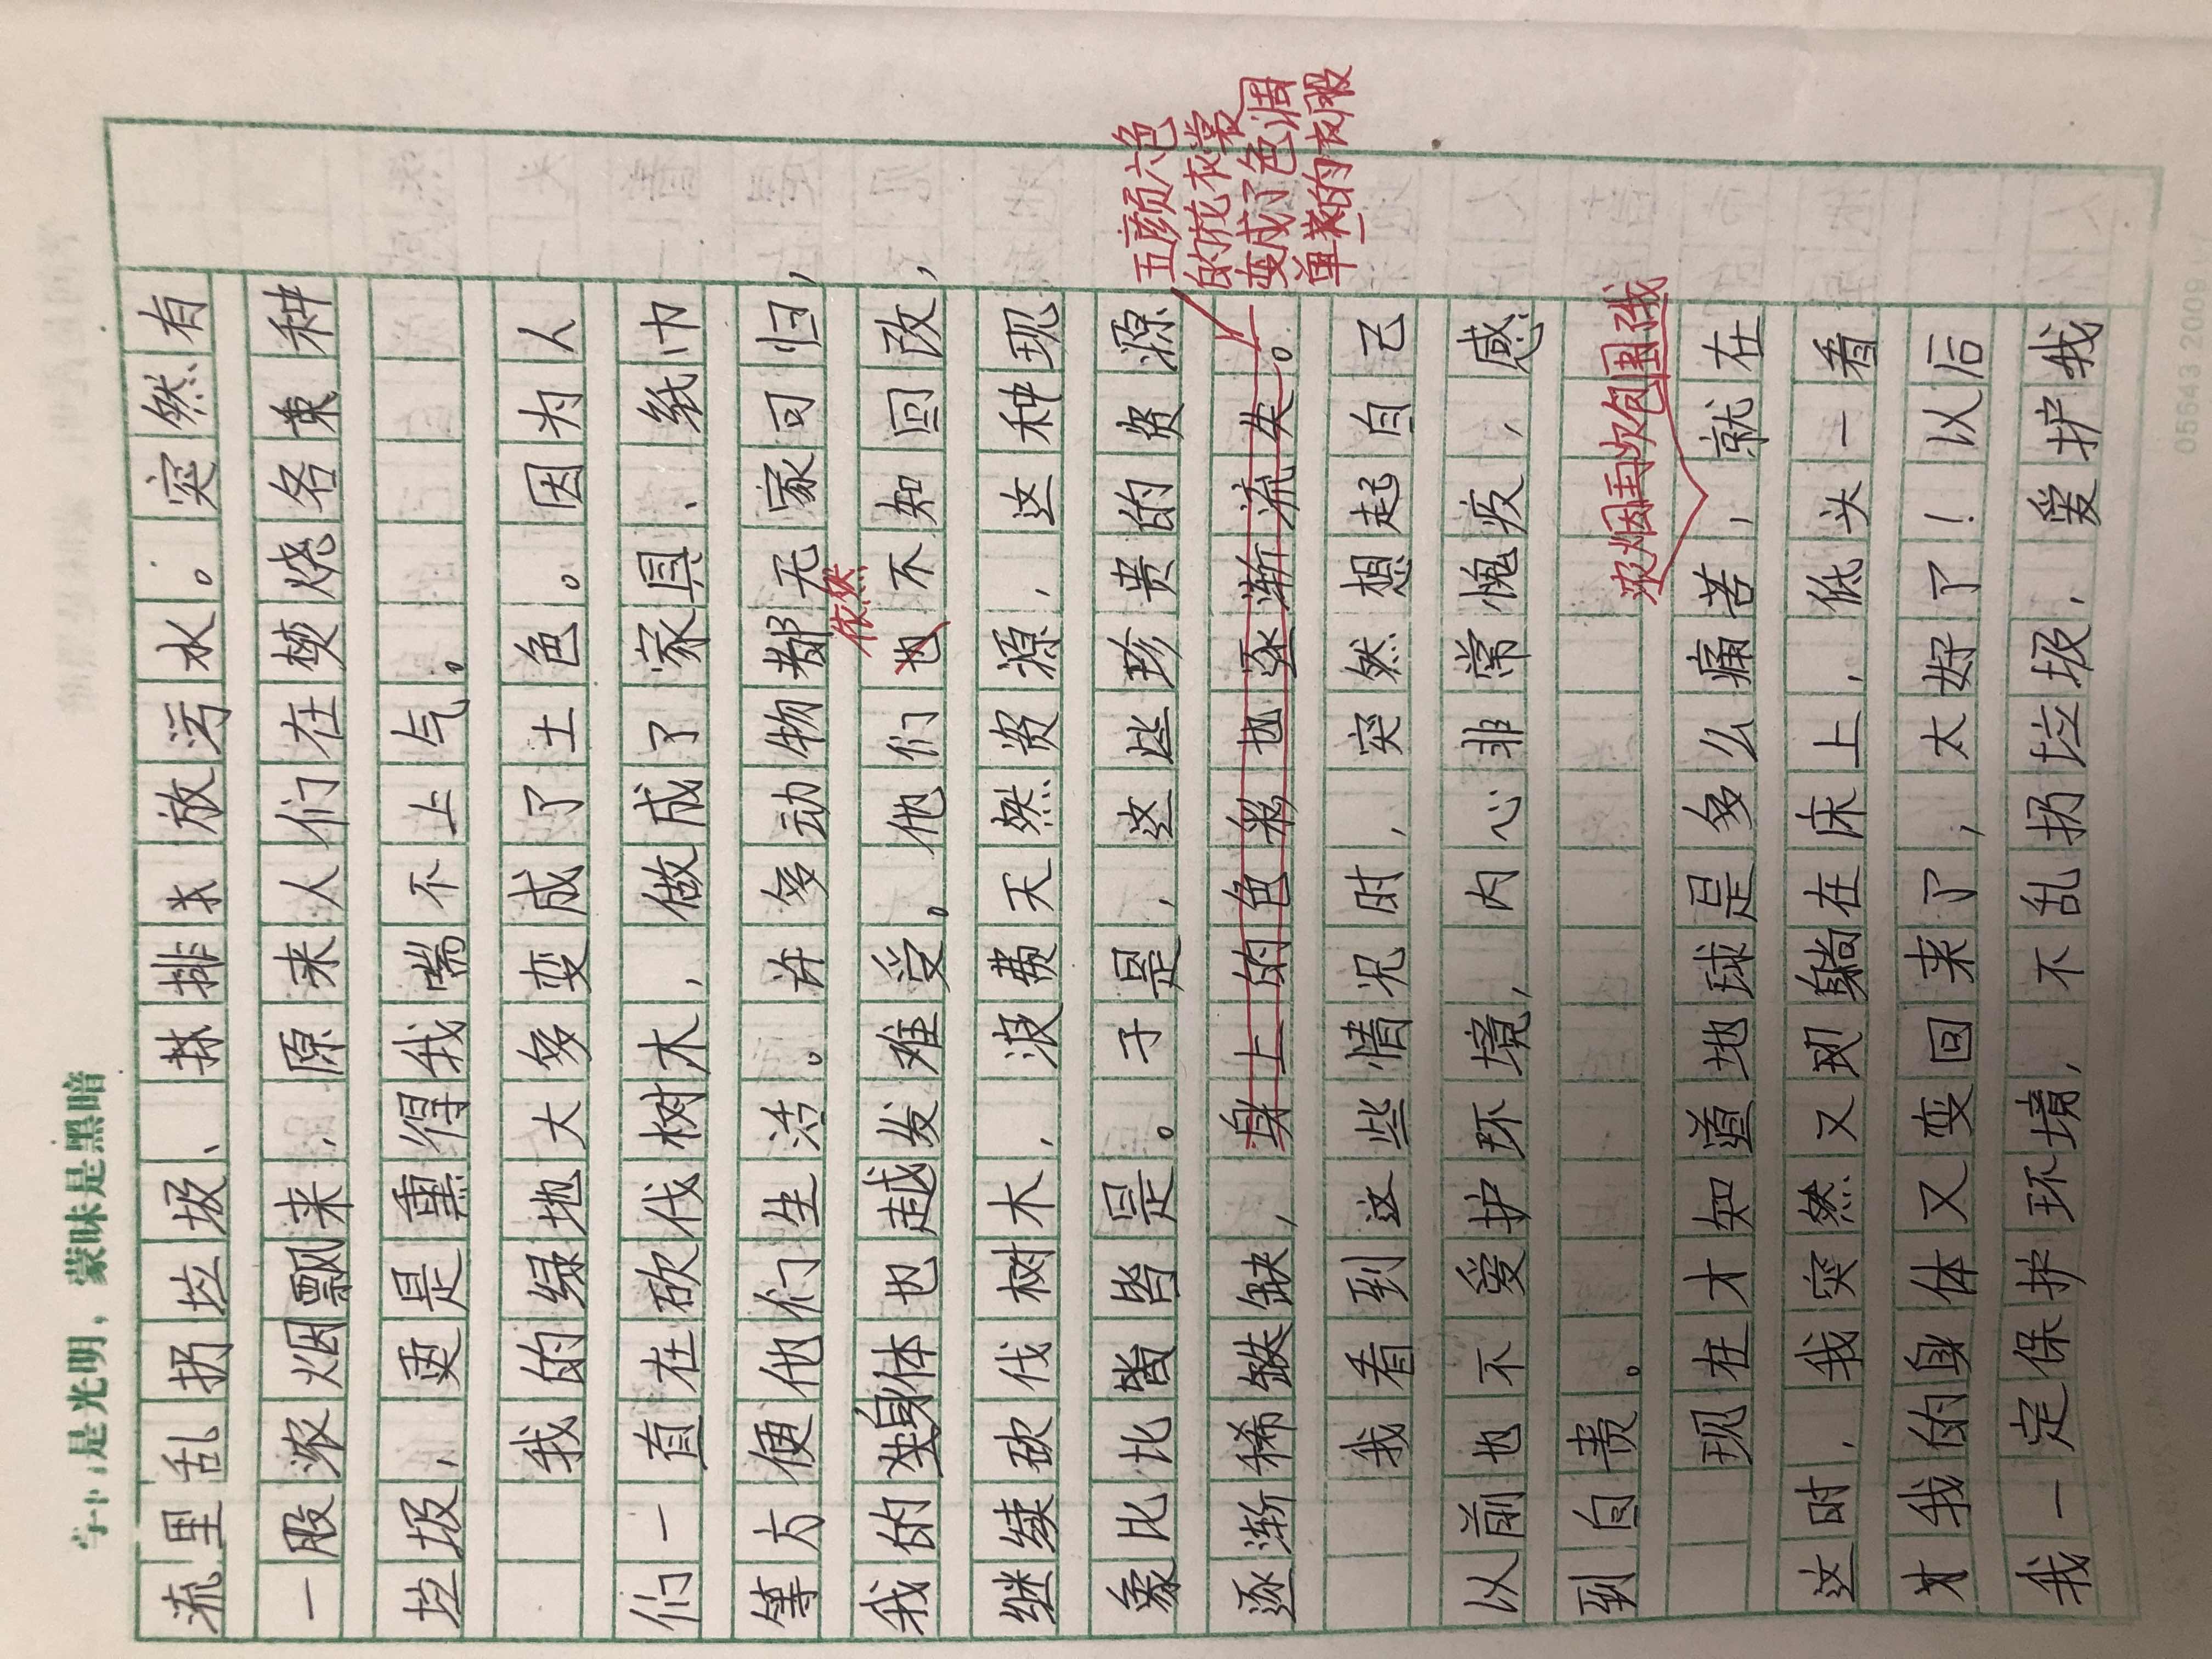 是光明，蒙昧是黑暗
流里乱扔垃圾、排放污水。突然有
一股浓烟飘来，原来人们在焚烧各种
垃圾，更是熏得我喘不上气。
我的绿地大多变成了土色。因为人
们一直在砍伐树木，做成了家具、纸巾
等方便他们生活。许多动物都无家可归，
我的身体也越发难受。他们也不知回改，
依然
继续砍伐树木，浪费天然资源，这种现
象比比皆是。于是，这些珍贵的资源
逐渐稀缺，身上的色彩也逐渐流失。
五颜六色
的花衣裳
变成了色调
单一的衣服
我看到这些情况时，突然想起自己
以前也不爱护环境，内心非常愧疚，感
到自责。
浓烟再次包围了我
现在才知道地球是多么痛苦，就在
这时，我突然又躺在床上，低头一看
我的身体又变回来了，太好了！以后
我一定保护环境，不乱扔垃圾，爱护我
05543 2009